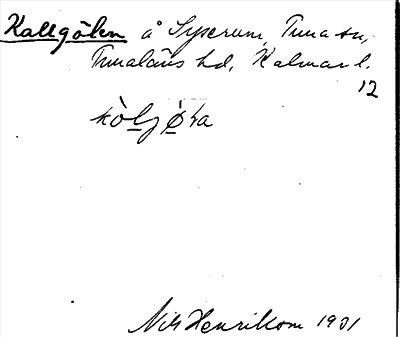 Kallgölen å Syserum, Tuna sn,
Tunaläns hd, Kalmar l.
12
kòljǿta
Nils Henrikson 1931